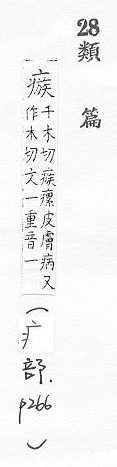 28
類
篇
瘯千木切瘯瘰皮膚病又
作木切文一重音一
(疒部.
p266)